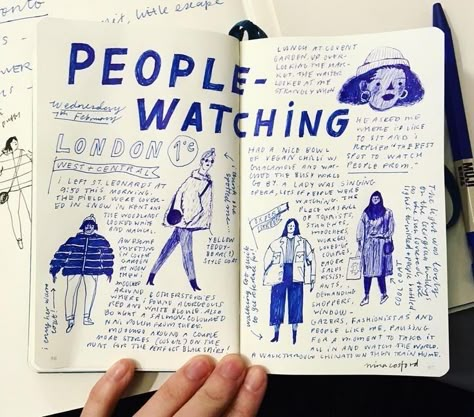 PEOPLE-
WATCHING
Wednesday
7th February
LONDON 1°c
WEST + CENTRAL
I LEFT ST. LEONARDS AT
9:50 THIS MORNING.
THE FIELDS WERE COVER-
ED IN SNOW IN KENT AND
THE WOODLANDS
LOOKED WHITE
AND MAGICAL.
AWESOME
MEETING
IN COVENT
GARDEN
AT NOON
THEN I
AROUND & OTHER STORIES
WHERE I FOUND A GORGEOUS
RED AND WHITE BLOUSE. ALSO
BOUGHT A SALMON-COLOURED
NAIL POLISH FROM THERE.
MOOCHED AROUND A COUPLE
MORE STORES (COS, ETC) ON THE
HUNT FOR THE PERFECT BLACK SHIRT!
YELLOW
TEDDY-
BEAR(!)
STYLE COAT
LUNCH AT COVENT
GARDEN, UP OVER-
LOOKING THE MAR-
KET. THE WAITER
LOOKED AT ME
STRANGELY WHEN
HE ASKED ME
WHERE I'D LIKE
TO SIT AND I
REPLIED "THE BEST
SPOT TO WATCH
PEOPLE FROM."
HAD A NICE BOWL
OF VEGAN CHILLI W/
GUACAMOLE AND WAT-
CHED THE BUSY WORLD
GO BY. A LADY WAS SINGING
OPERA, LOTS OF PEOPLE WERE
WATCHING. THE
TOURISTS,
STUDENTS,
WORKERS,
COUPLES,
SALES
ASSIST-
ANTS,
DEMANDING
SHOPPERS,
WINDOW-
GAZERS, FASHIONISTAS AND
PEOPLE LIKE ME, PAUSING
FOR A MOMENT TO TAKE IT
ALL IN AND WATCH THE WORLD.
A WALK THROUGH CHINATOWN THEN TRAIN HOME.
nina cosford